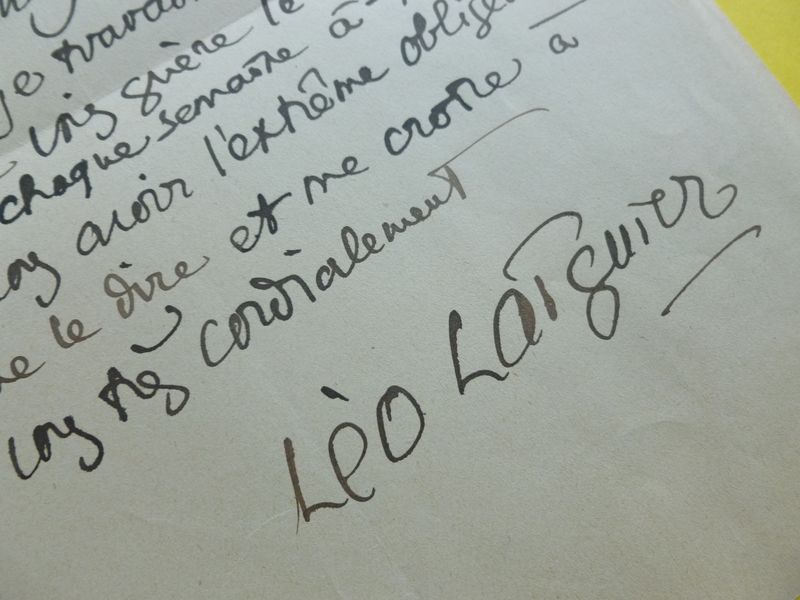 je travail
vois guère le
chaque semaine à
vous avoir l'extrême oblige
le dire et me croire à
vous très cordialement
Léo Larguier